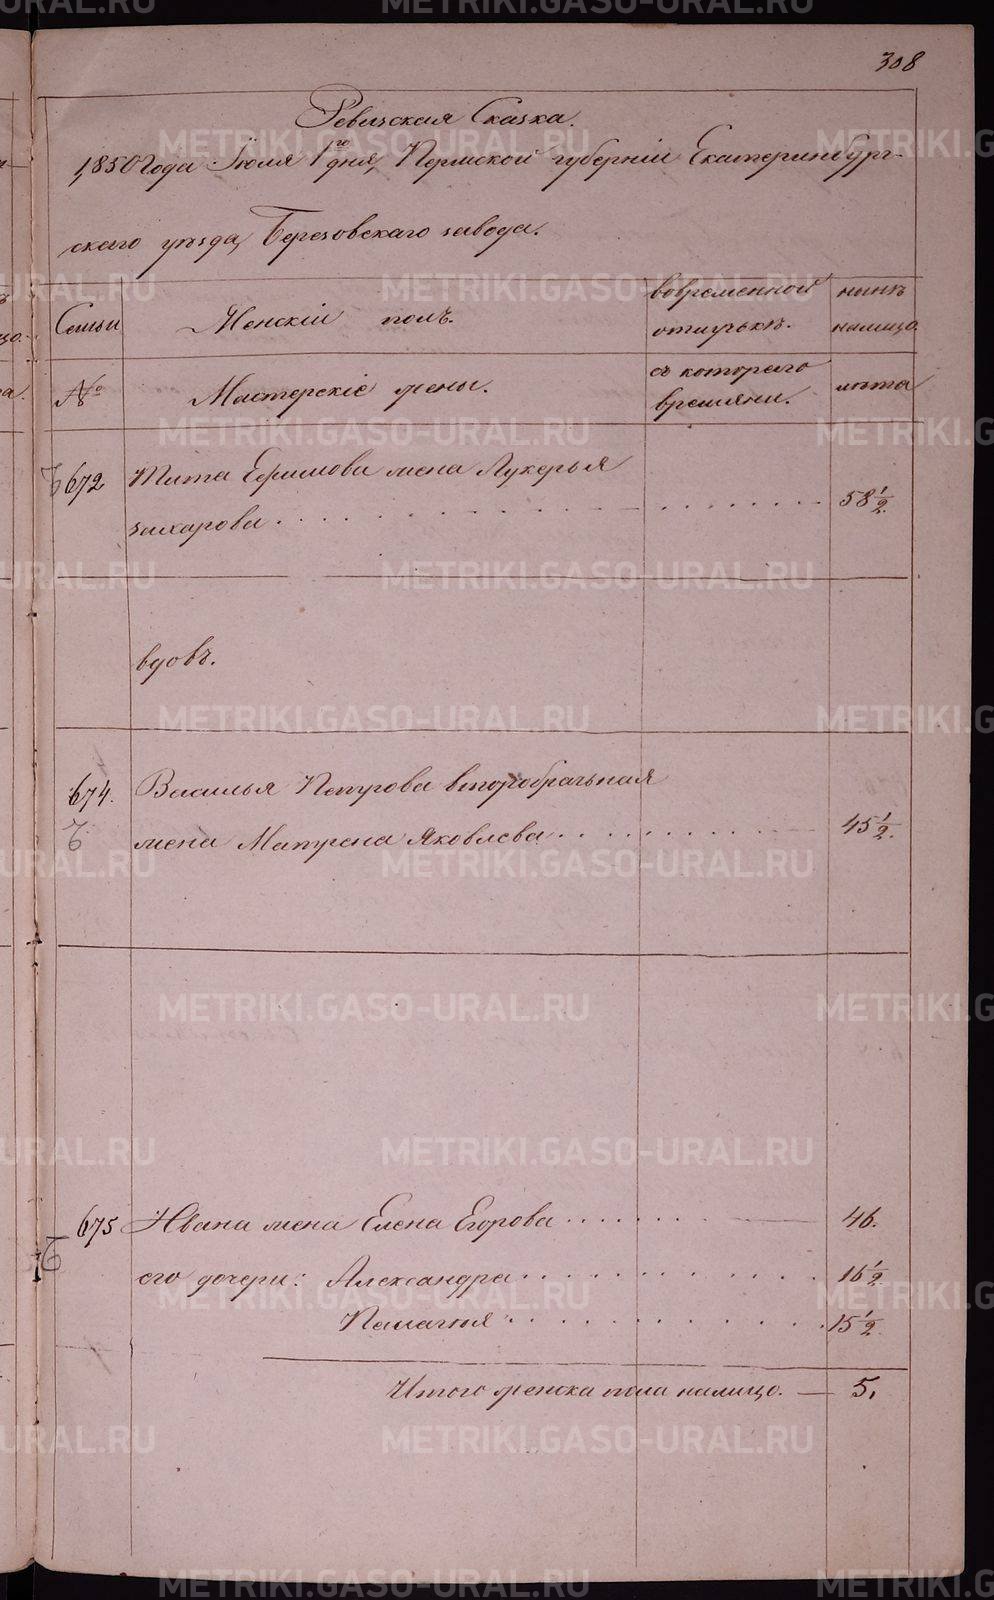 308
Ревизская Сказка.
1850 Года Іюля 1го дня, Пермской губерніи Екатеринбург-
скаго уѣзда, Березовскаго завода.
Семьи
Женскій полъ.
вовременной
отлучькѣ.
нынѣ
налицо.
№
Мастерскіе жены.
съ котораго
времяни.
лѣта
672
Тита Ефимова жена Лукерья
захарова
58 1/2.
вдовъ.
674.
Василья Петрова второбрачьная
жена Матрена Яковлева
45 1/2.
675
Ивана жена Елена Егорова
46.
его дочери: Александра
16 1/2
Пелагия
15 1/2
Итого женска пола налицо. — 5.
METRIKI.GASO-URAL.RU